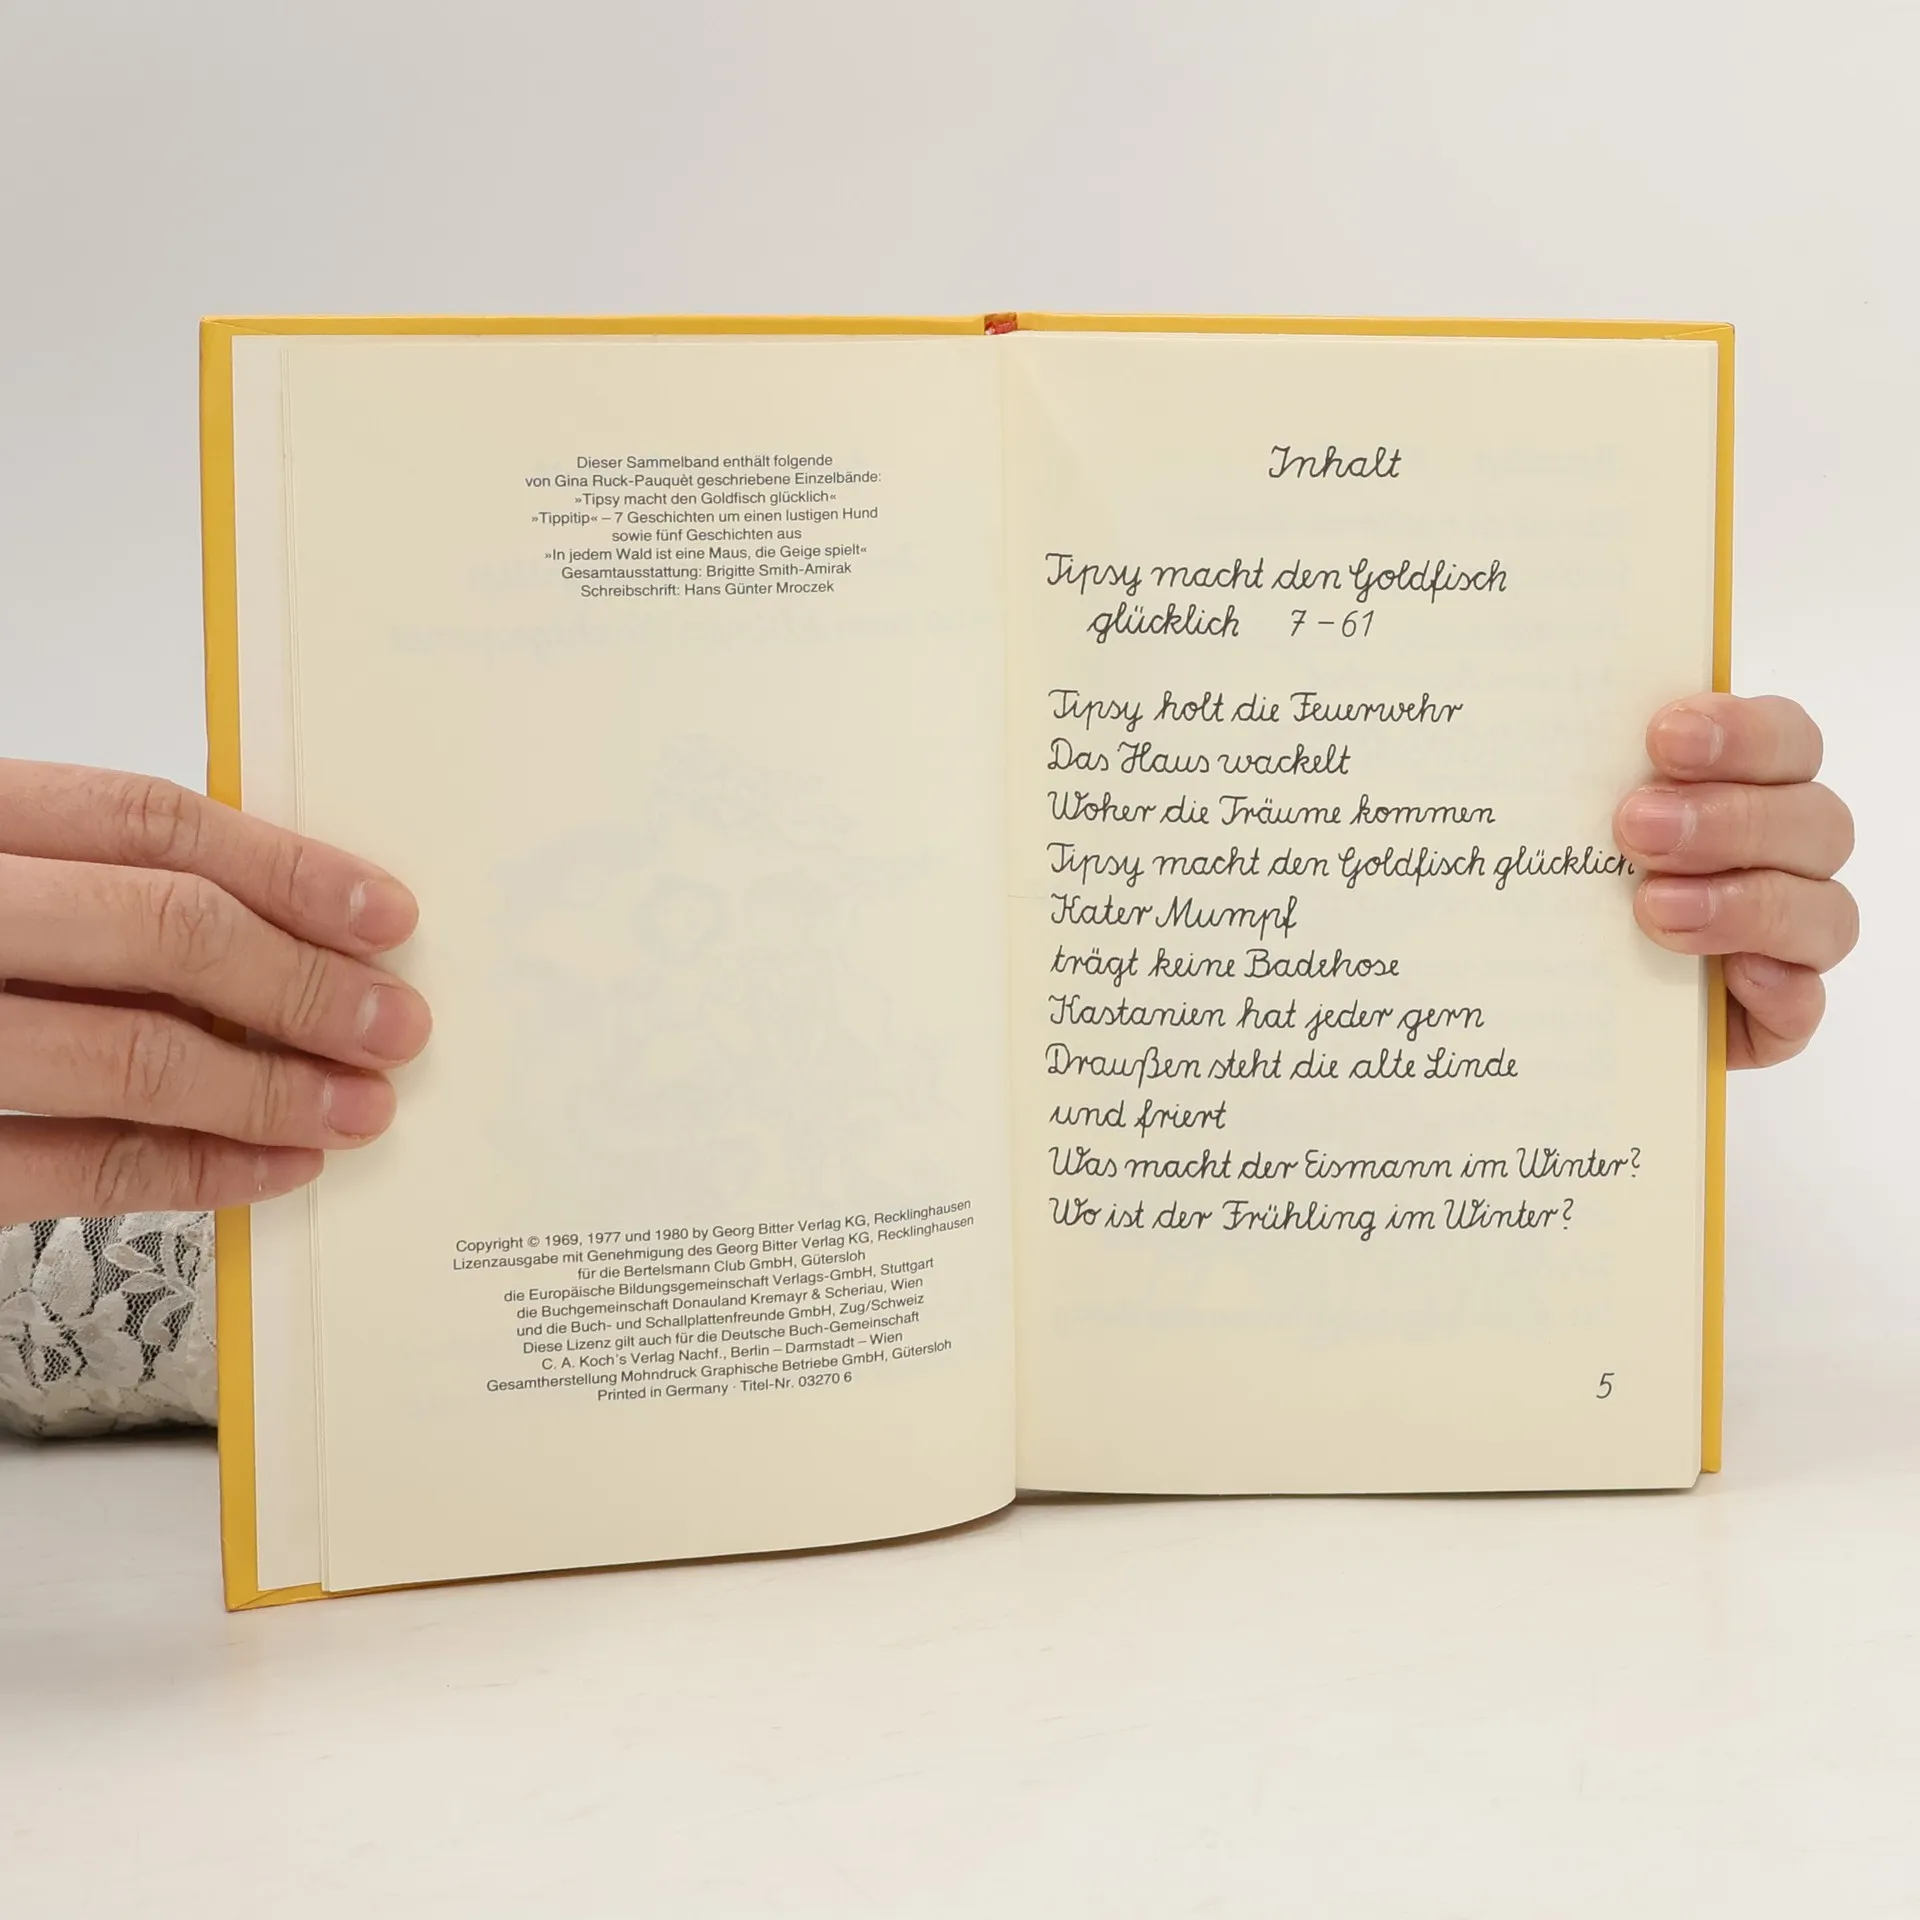 Dieser Sammelband enthält folgende
von Gina Ruck-Pauquèt geschriebene Einzelbände:
»Tipsy macht den Goldfisch glücklich«
»Tippitip« – 7 Geschichten um einen lustigen Hund
sowie fünf Geschichten aus
»In jedem Wald ist eine Maus, die Geige spielt«
Gesamtausstattung: Brigitte Smith-Amirak
Schreibschrift: Hans Günter Mroczek
Copyright © 1969, 1977 und 1980 by Georg Bitter Verlag KG, Recklinghausen
Lizenzausgabe mit Genehmigung des Georg Bitter Verlag KG, Recklinghausen
für die Bertelsmann Club GmbH, Gütersloh
die Europäische Bildungsgemeinschaft Verlags-GmbH, Stuttgart
die Buchgemeinschaft Donauland Kremayr & Scheriau, Wien
und die Buch- und Schallplattenfreunde GmbH, Zug/Schweiz
Diese Lizenz gilt auch für die Deutsche Buch-Gemeinschaft
C. A. Koch's Verlag Nachf., Berlin – Darmstadt – Wien
Gesamtherstellung Mohndruck Graphische Betriebe GmbH, Gütersloh
Printed in Germany · Titel-Nr. 03270 6
Inhalt
Tipsy macht den Goldfisch
glücklich 7 – 61
Tipsy holt die Feuerwehr
Das Haus wackelt
Woher die Träume kommen
Tipsy macht den Goldfisch glücklich
Kater Mumpf
trägt keine Badehose
Kastanien hat jeder gern
Draußen steht die alte Linde
und friert
Was macht der Eismann im Winter?
Wo ist der Frühling im Winter?
5